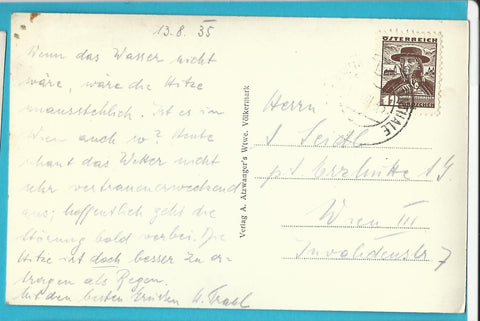 13.8.35
Wenn das Wasser nicht
wäre, wäre die Hitze
unausstehlich. Ist es in
Wien auch so? Heute
schaut das Wetter nicht
sehr vertrauenerweckend
aus; hoffentlich geht die
Störung bald vorbei. Die
Hitze ist doch besser zu er-
tragen als Regen.
Mit den besten Grüßen
Verlag A. Atzwanger's Wtwe. Völkermark
ÖSTERREICH
Herrn
S. Seidl
Wien III
Invalidenstr 7